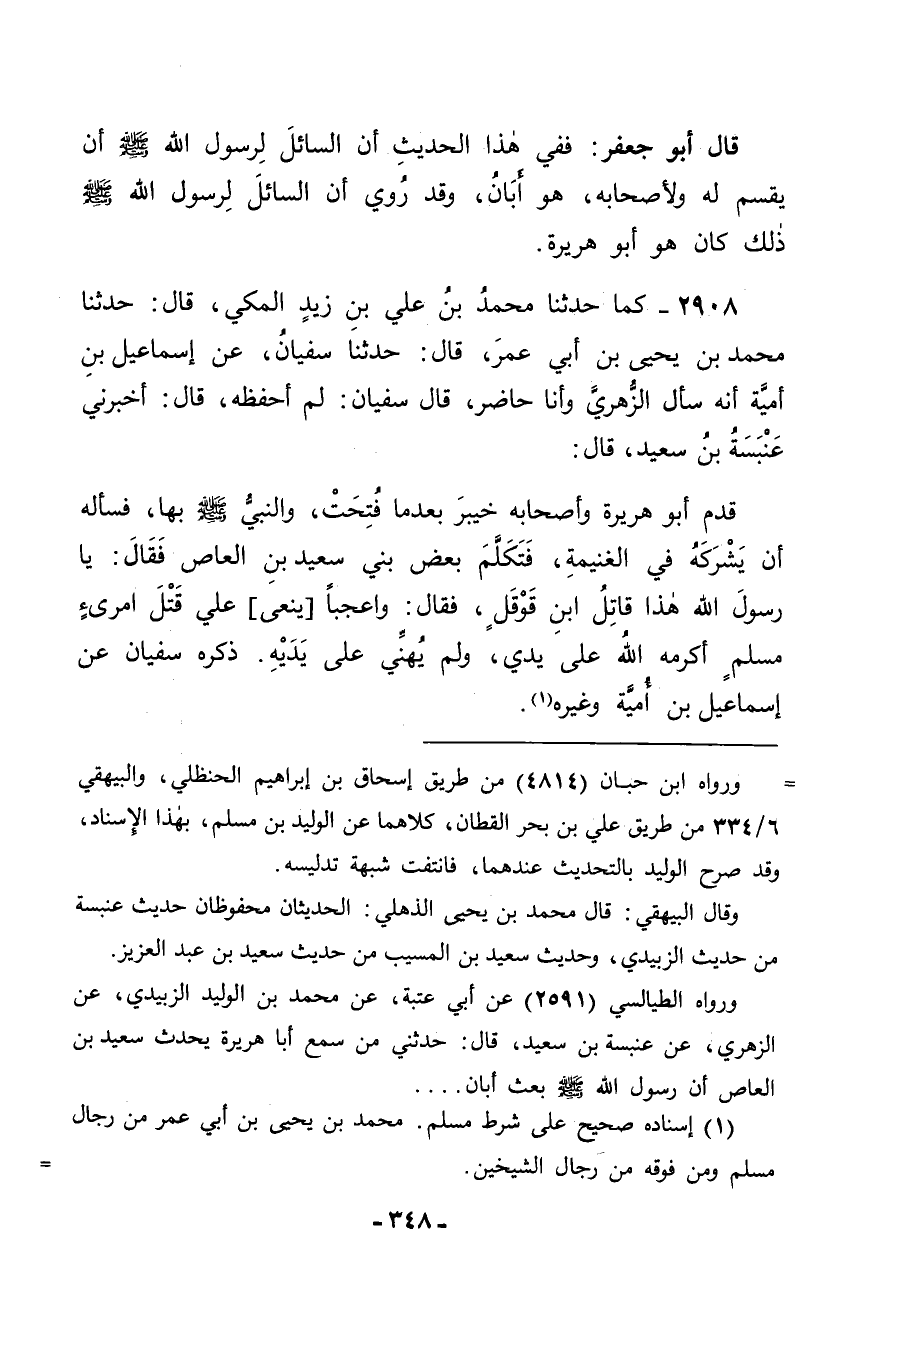 قال أبو جعفر: ففي هٰذا الحديثِ أن السائلَ لِرسول الله ﷺ أن
يقسم له ولأصحابه، هو أَبَانُ، وقد رُوي أن السائلَ لِرسول الله ﷺ
ذٰلك كان هو أبو هريرة.
٢٩٠٨ ـ كما حدثنا محمدُ بنُ علي بنِ زيدٍ المكي، قال: حدثنا
محمد بن يحيى بن أبي عمرَ، قال: حدثنا سفيانُ، عن إسماعيل بنِ
أميَّة أنه سأل الزُّهريَّ وأنا حاضر، قال سفيان: لم أحفظه، قال: أخبرني
عَنْبَسَةُ بنُ سعيد، قال:
قدم أبو هريرة وأصحابه خيبرَ بعدما فُتِحَتْ، والنبيُّ ﷺ بها، فسأله
أن يَشْرَكَهُ في الغنيمةِ، فَتَكَلَّمَ بعض بني سعيد بنِ العاص فَقَالَ: يا
رسولَ الله هٰذا قاتِلُ ابنِ قَوْقَلٍ، فقال: واعجباً [ينعى] علي قَتْلَ امرىءٍ
مسلمٍ أكرمه اللهُ على يدي، ولم يُهنِّي على يَدَيْهِ. ذكره سفيان عن
إسماعيل بن أُميَّة وغيره(١).
= ورواه ابن حبان (٤٨١٤) من طريق إسحاق بن إبراهيم الحنظلي، والبيهقي
٣٣٤/٦ من طريق علي بن بحر القطان، كلاهما عن الوليد بن مسلم، بهٰذا الإسناد،
وقد صرح الوليد بالتحديث عندهما، فانتفت شبهة تدليسه.
وقال البيهقي: قال محمد بن يحيى الذهلي: الحديثان محفوظان حديث عنبسة
من حديث الزبيدي، وحديث سعيد بن المسيب من حديث سعيد بن عبد العزيز.
ورواه الطيالسي (٢٥٩١) عن أبي عتبة، عن محمد بن الوليد الزبيدي، عن
الزهري، عن عنبسة بن سعيد، قال: حدثني من سمع أبا هريرة يحدث سعيد بن
العاص أن رسول الله ﷺ بعث أبان....
(١) إسناده صحيح على شرط مسلم. محمد بن يحيى بن أبي عمر من رجال
مسلم ومن فوقه من رجال الشيخين. =
ـ ٣٤٨ ـ